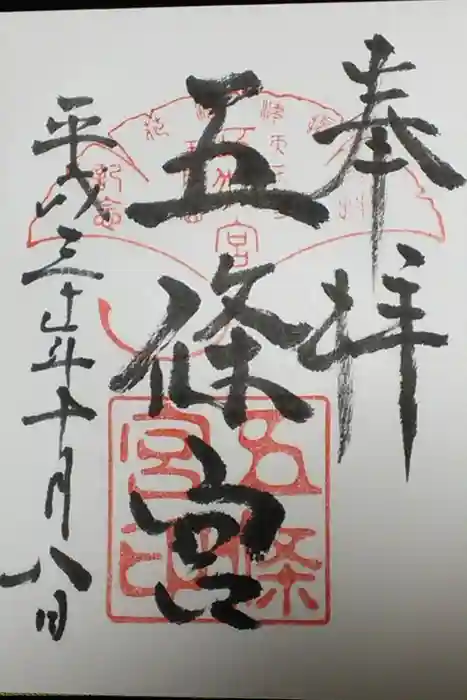 奉拝
五條宮
平成三十年十月八日
五條
宮印
記念